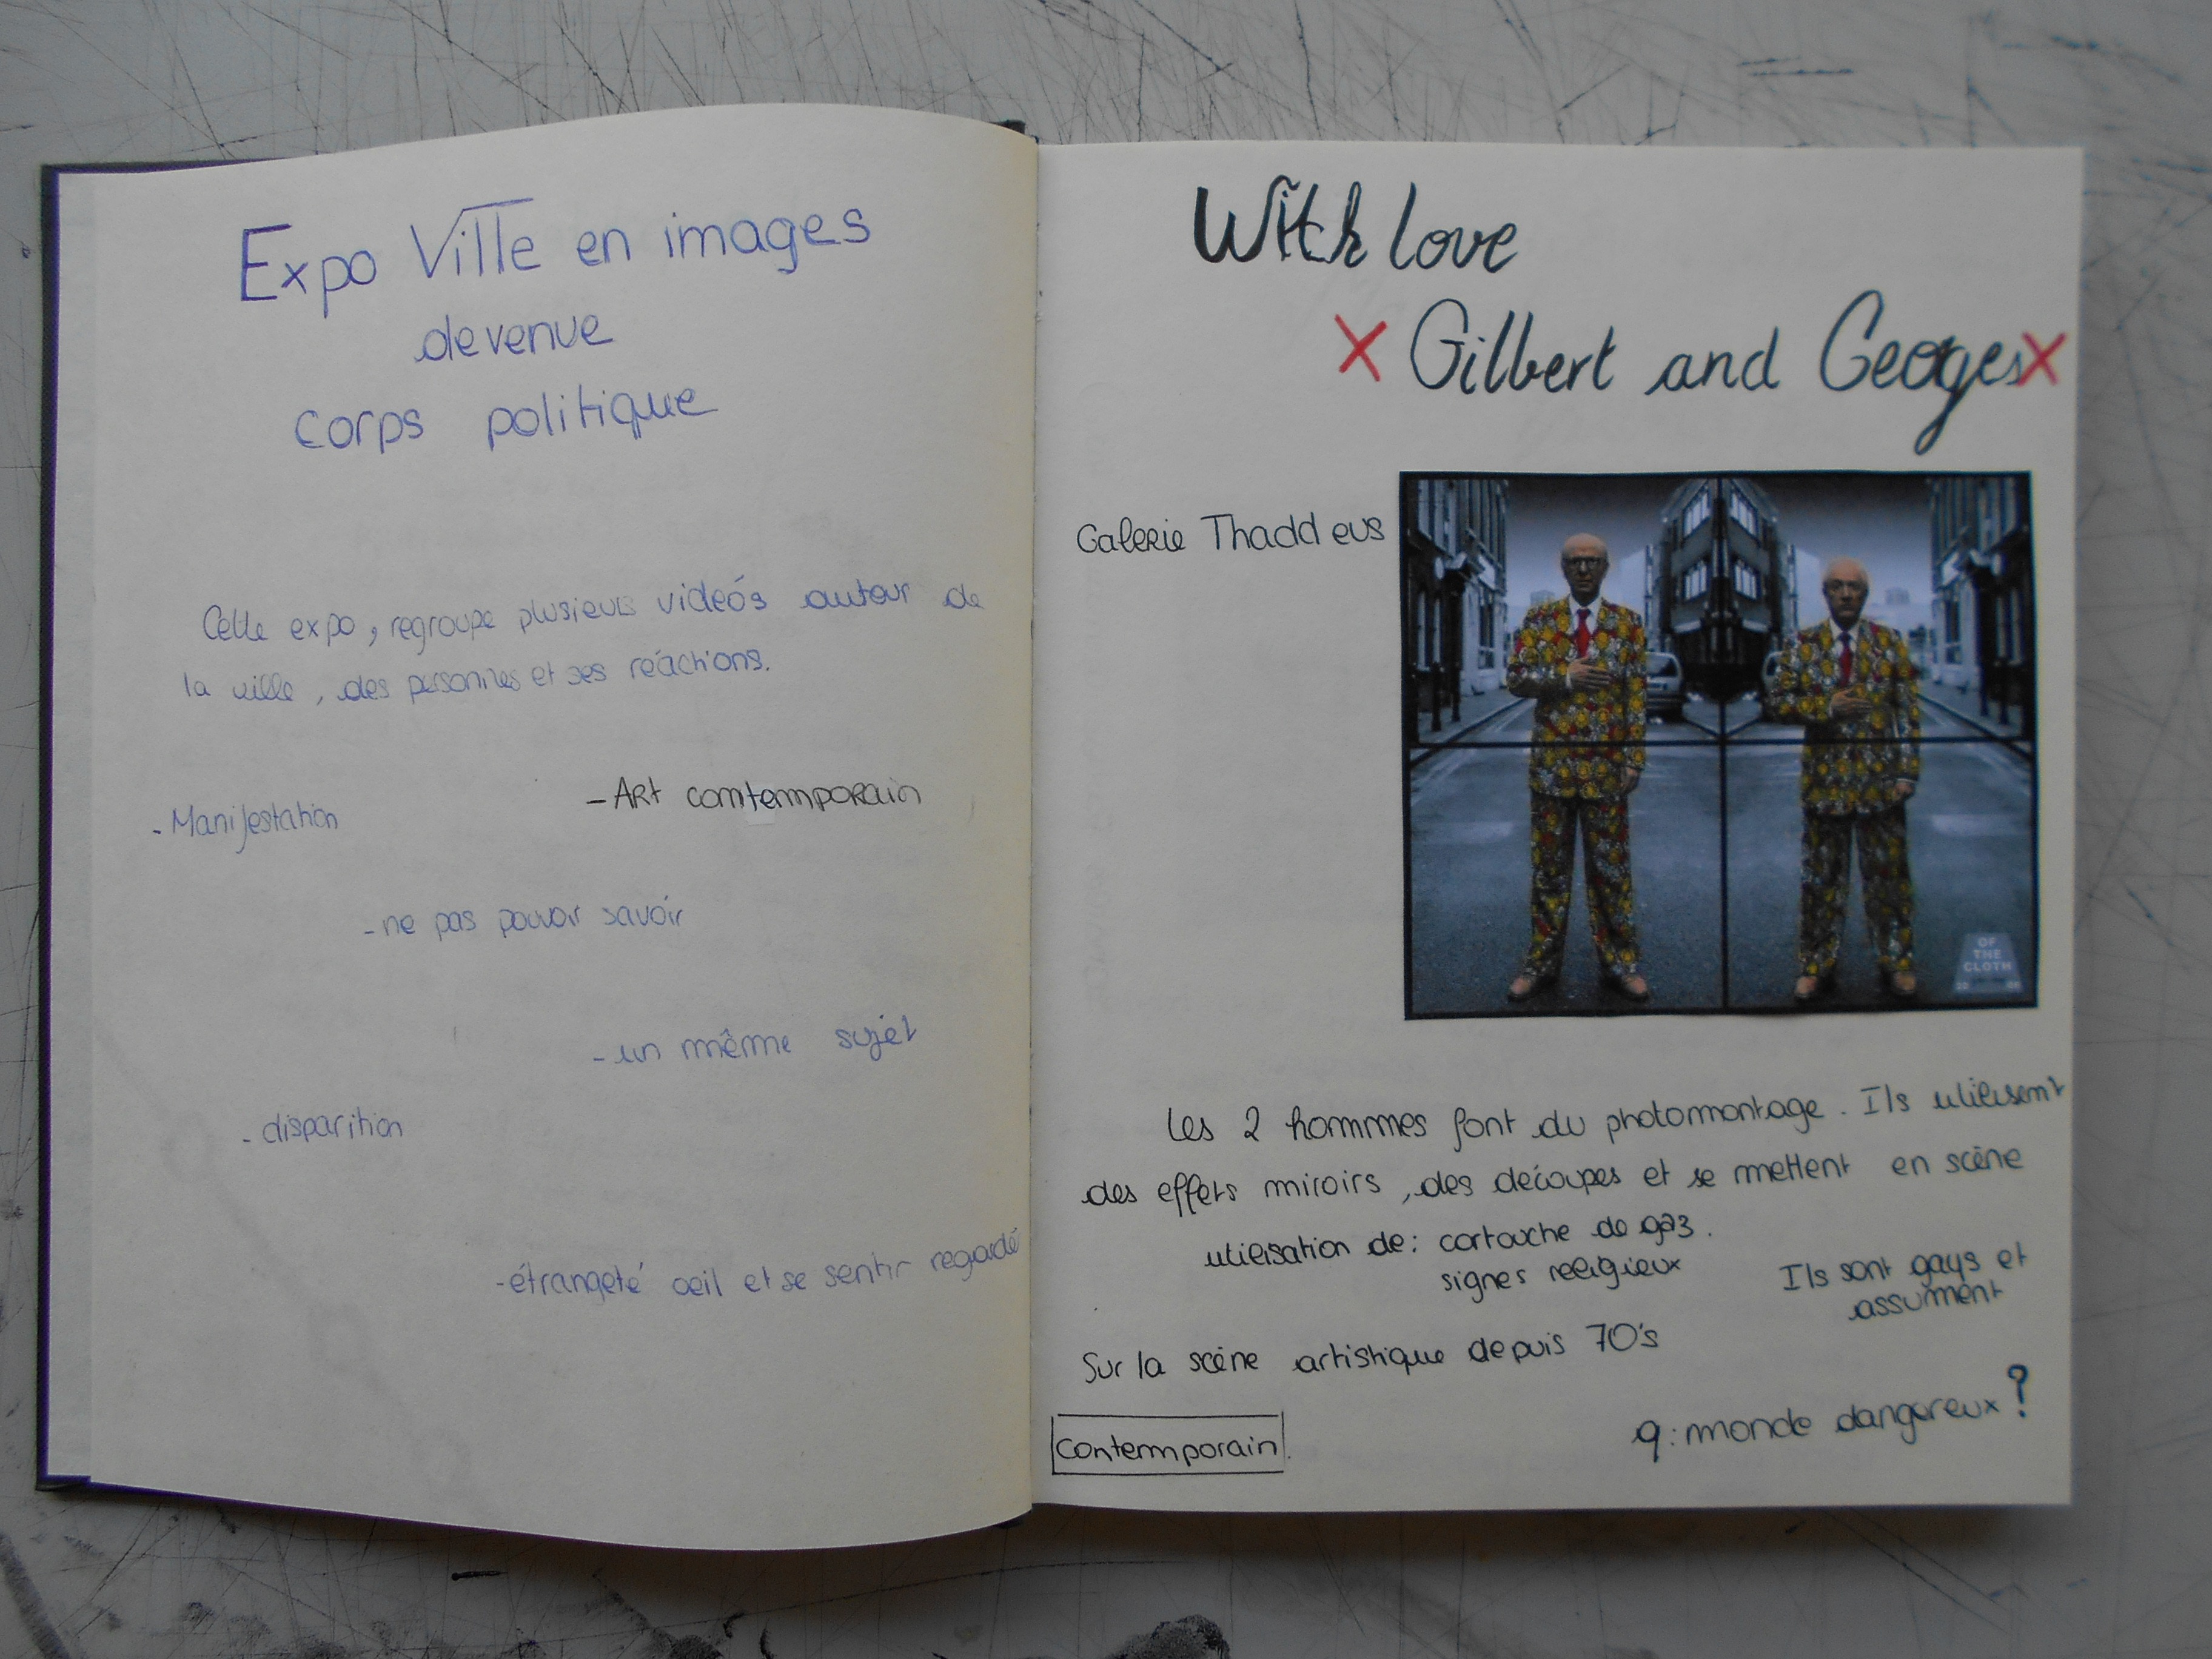 Expo Ville en images
devenue
corps politique
Cette expo, regroupe plusieurs vidéos autour de
la ville, des personnes et ses réactions.
- Art comtemporain
- Manifestation
- ne pas pouvoir savoir
- un même sujet
- disparition
- étrangeté oeil et se sentir regardé
With love
x Gilbert and Georges x
Galerie Thaddeus
OF
THE
CLOTH
20
Les 2 hommes font du photomontage. Ils utilisent
des effets miroirs, des découpes et se mettent en scène
utilisation de : cartouche de gaz.
signes religieux
Ils sont gays et
assument
Sur la scène artistique depuis 70's
q : monde dangereux ?
contemporain.